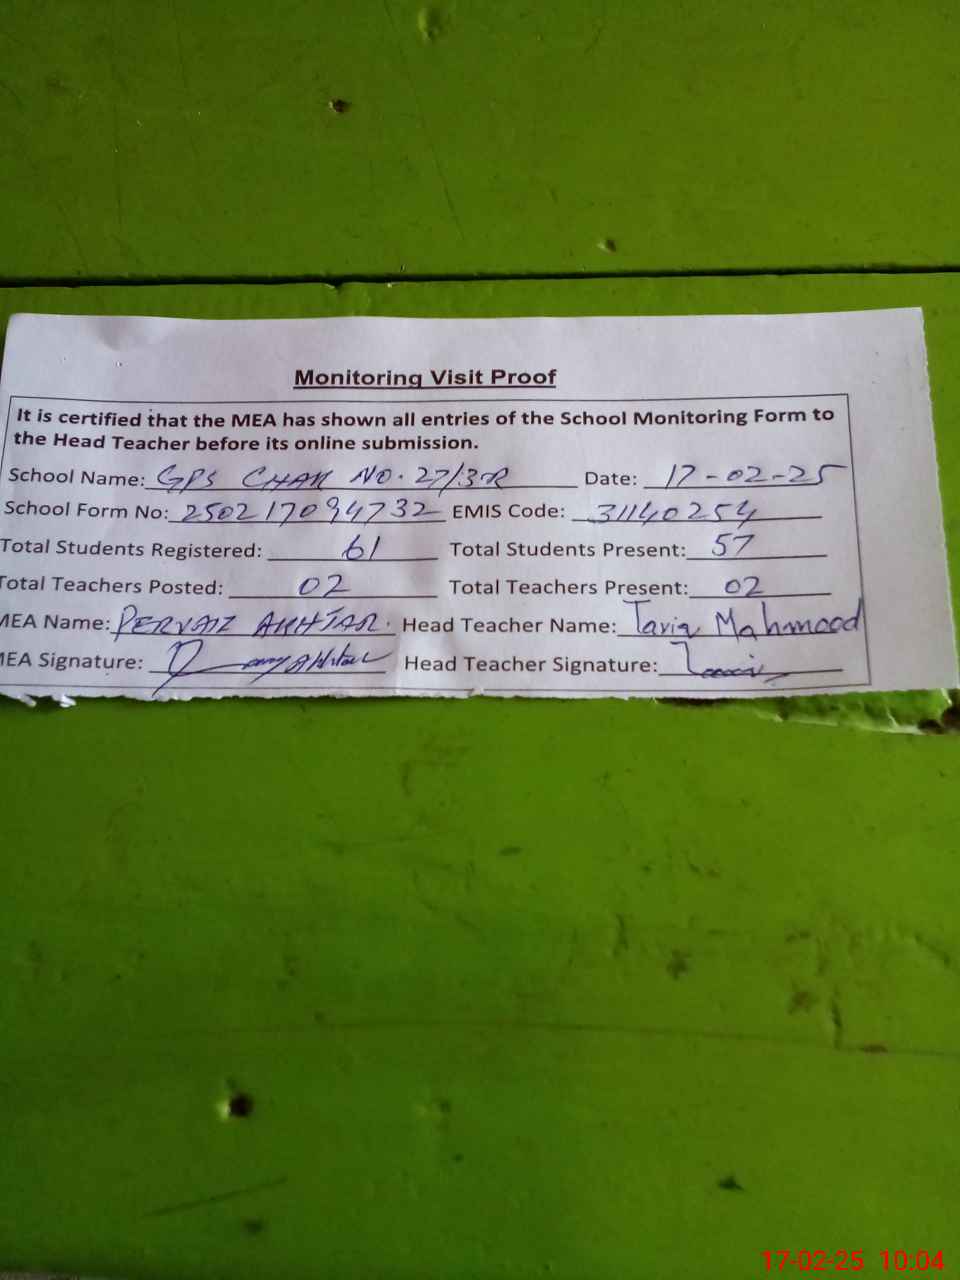 Monitoring Visit Proof
It is certified that the MEA has shown all entries of the School Monitoring Form to
the Head Teacher before its online submission.
School Name: GPS CHAK NO. 27/3R Date: 17-02-25
School Form No: 250217094732 EMIS Code: 31140254
Total Students Registered: 61 Total Students Present: 57
Total Teachers Posted: 02 Total Teachers Present: 02
MEA Name: PERVAIZ AKHTAR. Head Teacher Name: Tariq Mahmood
MEA Signature: Head Teacher Signature:
17-02-25 10:04